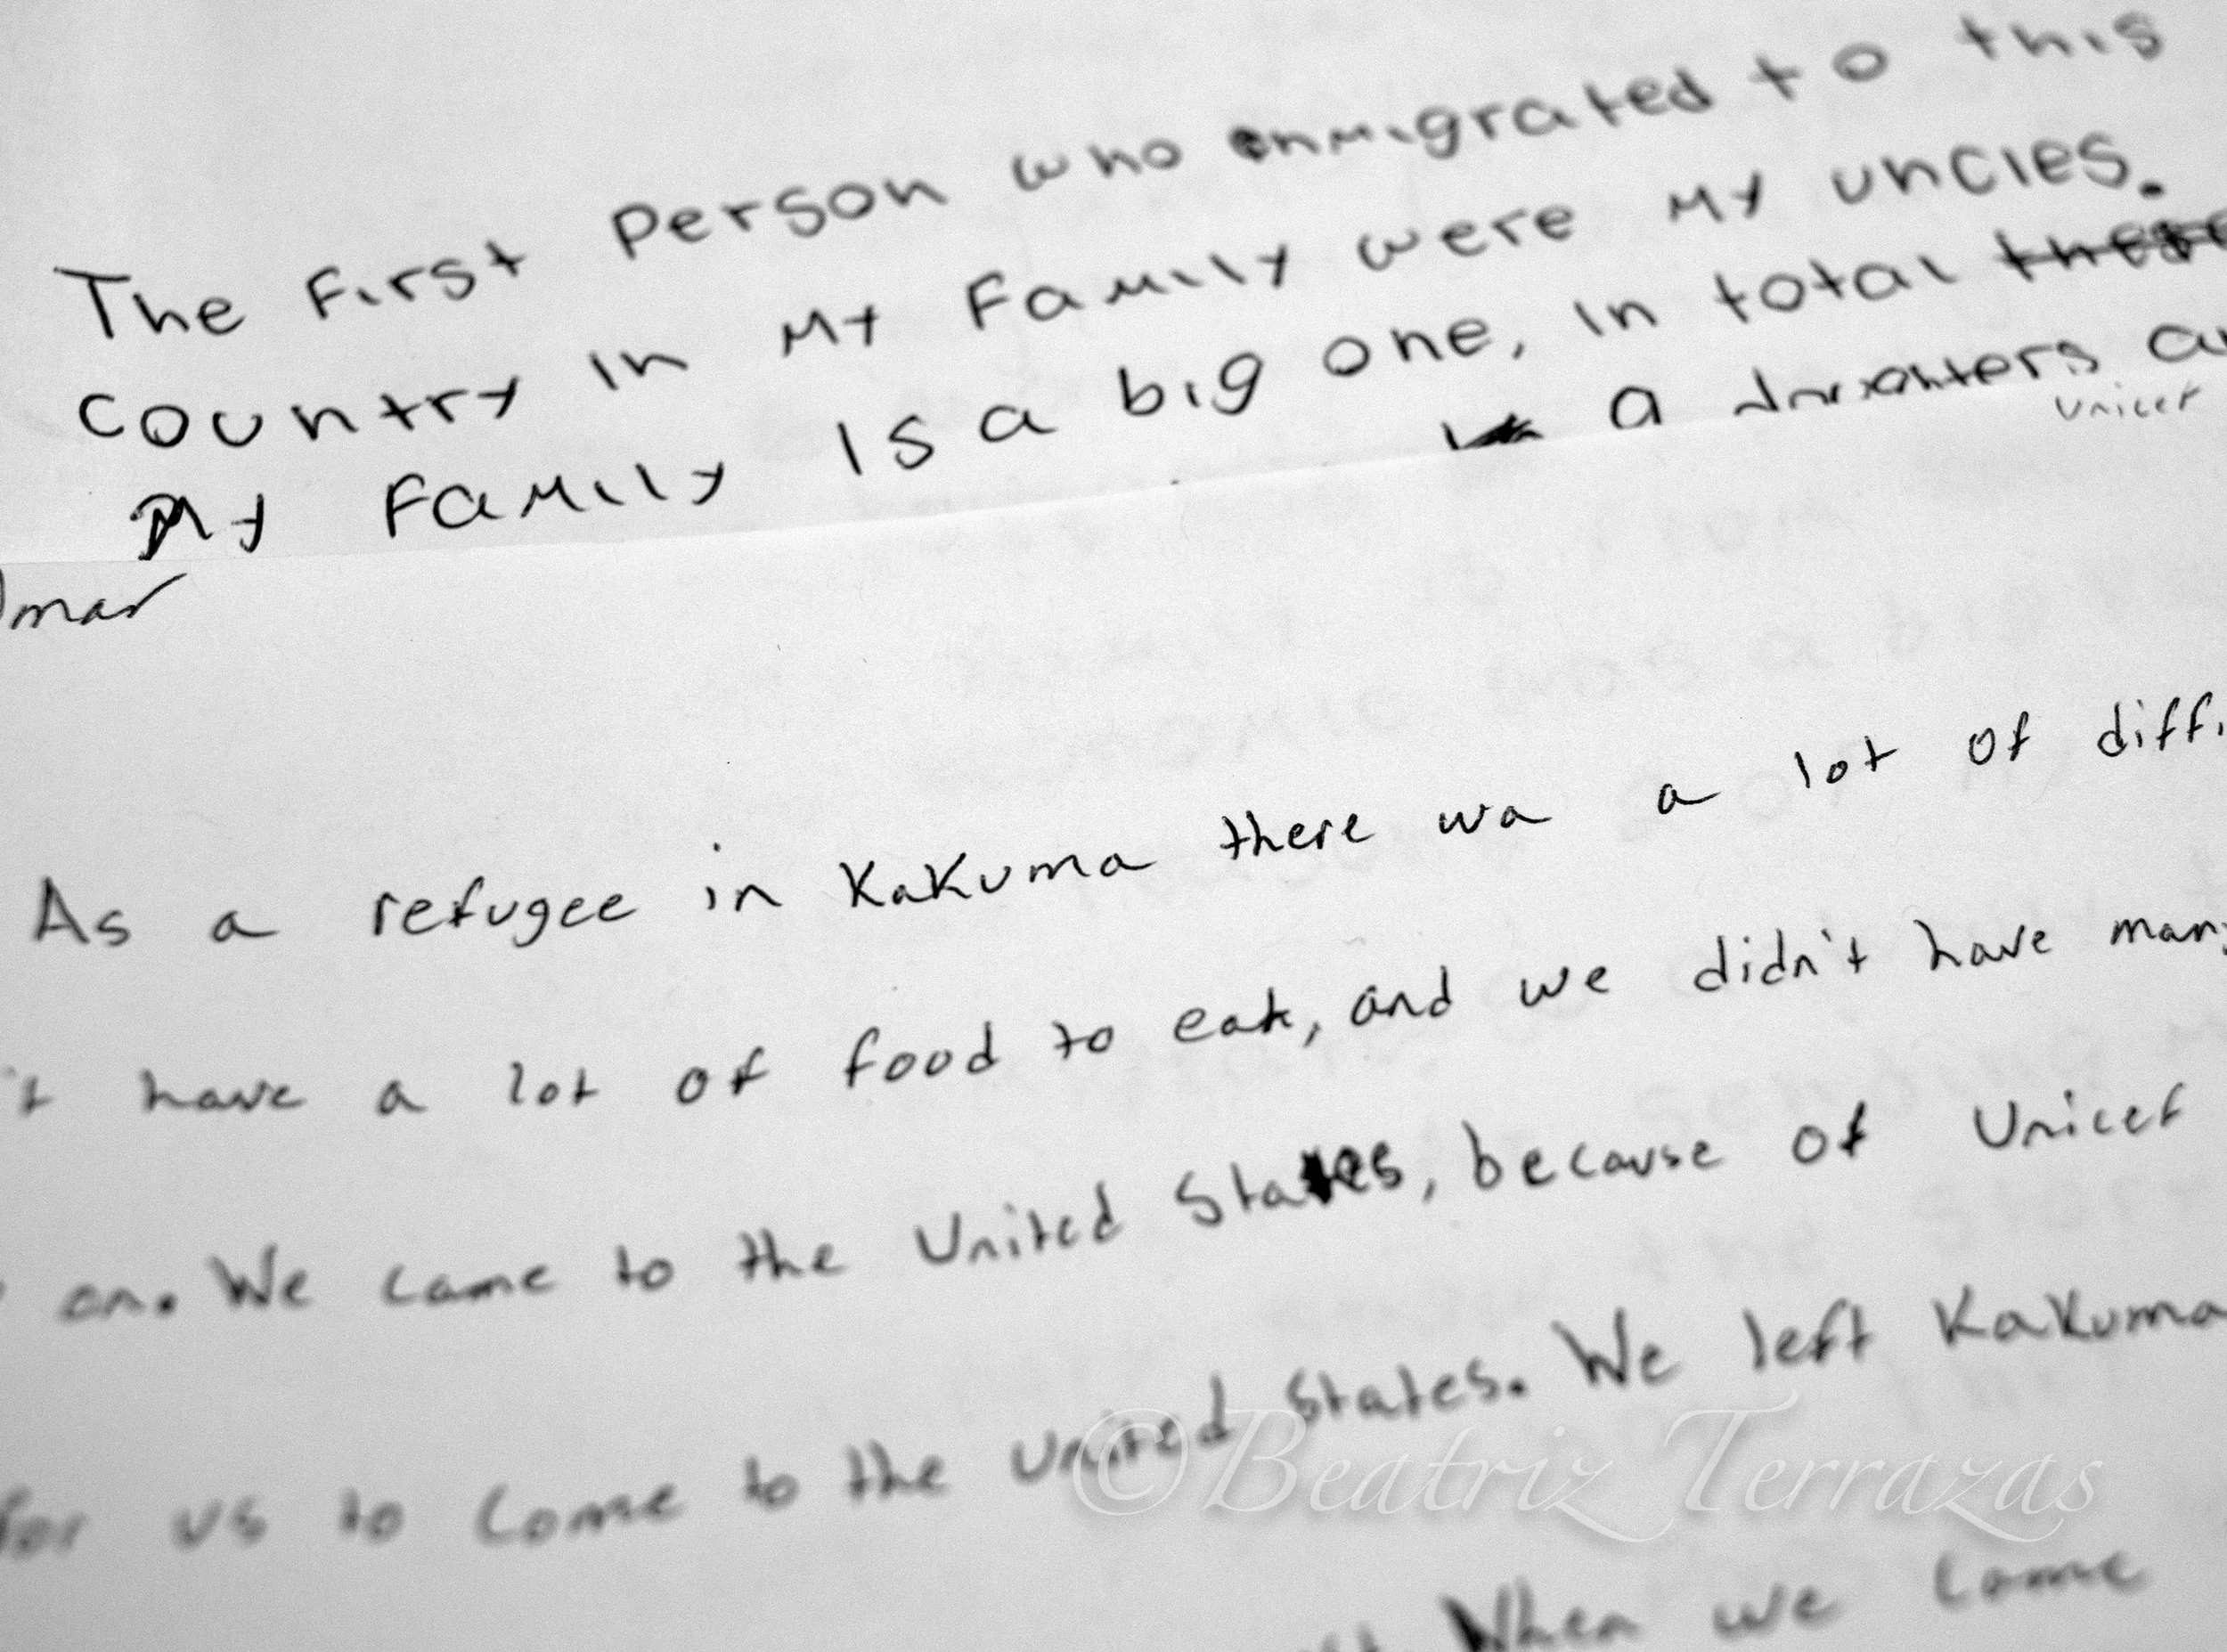 The First Person who enmigrated to this
country in My Family were My uncles.
My Family is a big one, in total these
a daughters
unicef
Omar
As a refugee in Kakuma there wa a lot of diff
't have a lot of food to eat, and we didn't have many
on. We came to the United States, because of Unicef
for us to come to the United States. We left Kakuma
When we come
©Beatriz Terrazas